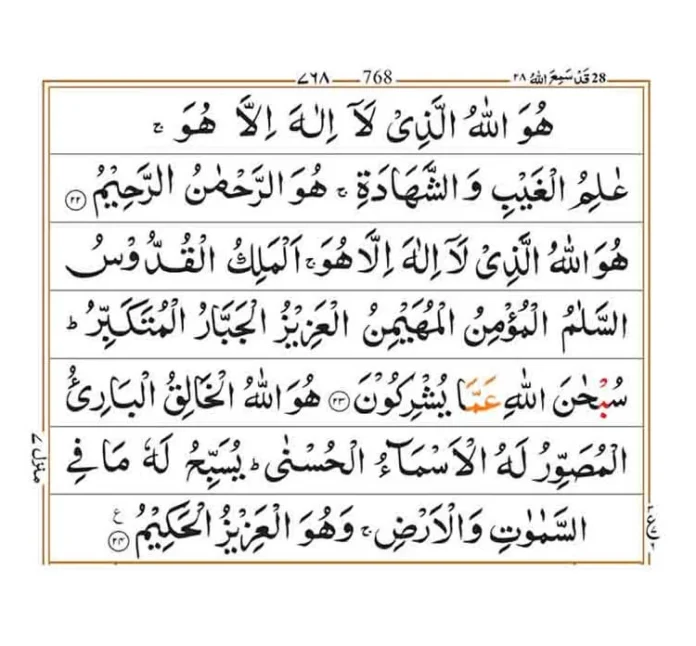 ۷۶۸ 768 28 قَدْ سَمِعَ اللهُ ۲۸
هُوَ اللّٰهُ الَّذِىْ لَاۤ اِلٰهَ اِلَّا هُوَ ۚ
عٰلِمُ الْغَيْبِ وَالشَّهَادَةِ ۚ هُوَ الرَّحْمٰنُ الرَّحِيْمُ ﴿۲۲﴾
هُوَ اللّٰهُ الَّذِىْ لَاۤ اِلٰهَ اِلَّا هُوَ ۚ اَلْمَلِكُ الْقُدُّوْسُ
السَّلٰمُ الْمُؤْمِنُ الْمُهَيْمِنُ الْعَزِيْزُ الْجَبَّارُ الْمُتَكَبِّرُ ؕ
سُبْحٰنَ اللّٰهِ عَمَّا يُشْرِكُوْنَ ﴿۲۳﴾ هُوَ اللّٰهُ الْخَالِقُ الْبَارِئُ
الْمُصَوِّرُ لَهُ الْاَسْمَآءُ الْحُسْنٰى ؕ يُسَبِّحُ لَهٗ مَا فِى
السَّمٰوٰتِ وَالْاَرْضِ ۚ وَهُوَ الْعَزِيْزُ الْحَكِيْمُ ﴿۲۴﴾ ع
منزل ۷